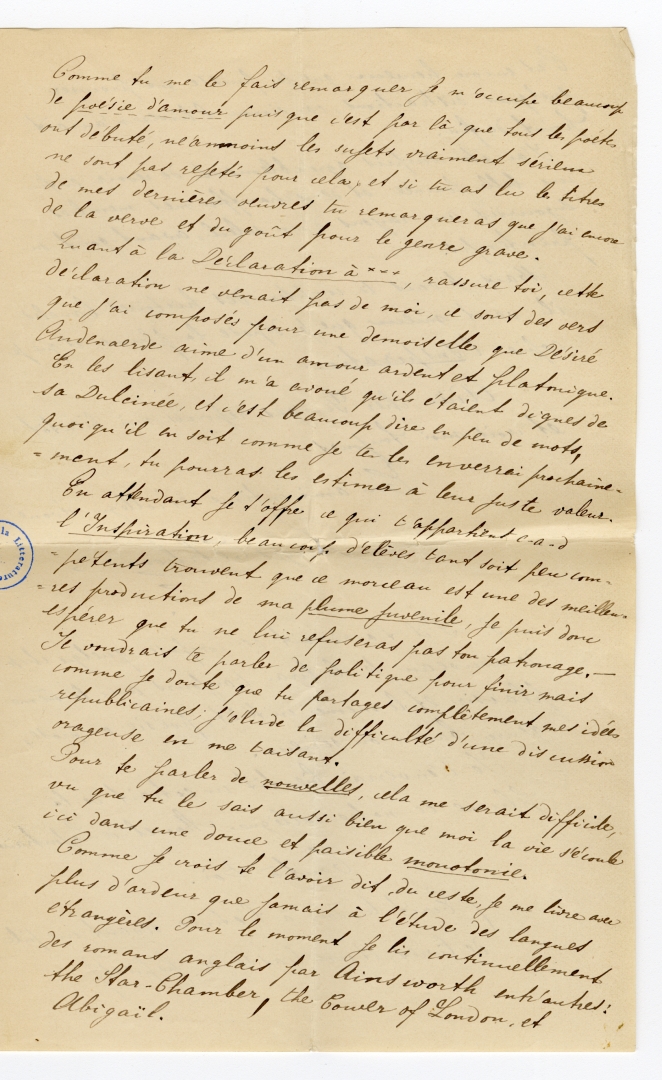 Comme tu me le fais remarquer je m'occupe beaucoup
de poésie d'amour puisque c'est par là que tous les poètes
ont débuté, néanmoins les sujets vraiment sérieux
ne sont pas rejetés pour cela, et si tu as lu les titres
de mes dernières œuvres tu remarqueras que j'ai encore
de la verve et du goût pour le genre grave.
Quant à la Déclaration à ***, rassure toi, cette
déclaration ne venait pas de moi, ce sont des vers
que j'ai composés pour une demoiselle que Désiré
Audenaerde aime d'un amour ardent et platonique.
En les lisant, il m'a avoué qu'ils étaient dignes de
sa Dulcinée, et c'est beaucoup dire en peu de mots,
quoiqu'il en soit comme je te les enverrai prochaine-
=ment, tu pourras les estimer à leur juste valeur.
En attendant je t'offre ce qui t'appartient c-a-d
l'Inspiration, beaucoup d'élèves tant soit peu com-
=pétents trouvent que ce morceau est une des meilleu-
=res productions de ma plume juvenile, je puis donc
espérer que tu ne lui refuseras pas ton patronage.—
Je voudrais te parler de politique pour finir mais
comme je doute que tu partages complètement mes idées
republicaines; j'élude la difficulté d'une discussion
orageuse en me taisant.
Pour te parler de nouvelles, cela me serait difficile,
vu que tu le sais aussi bien que moi la vie s'écoule
ici dans une douce et paisible monotonie.
Comme je crois te l'avoir dit, du reste, je me livre avec
plus d'ardeur que jamais à l'étude des langues
etrangères. Pour le moment je lis continuellement
des romans anglais par Ainsworth entr'autres:
the Star-Chamber, the Tower of London, et
Abigaïl.
la Littérature